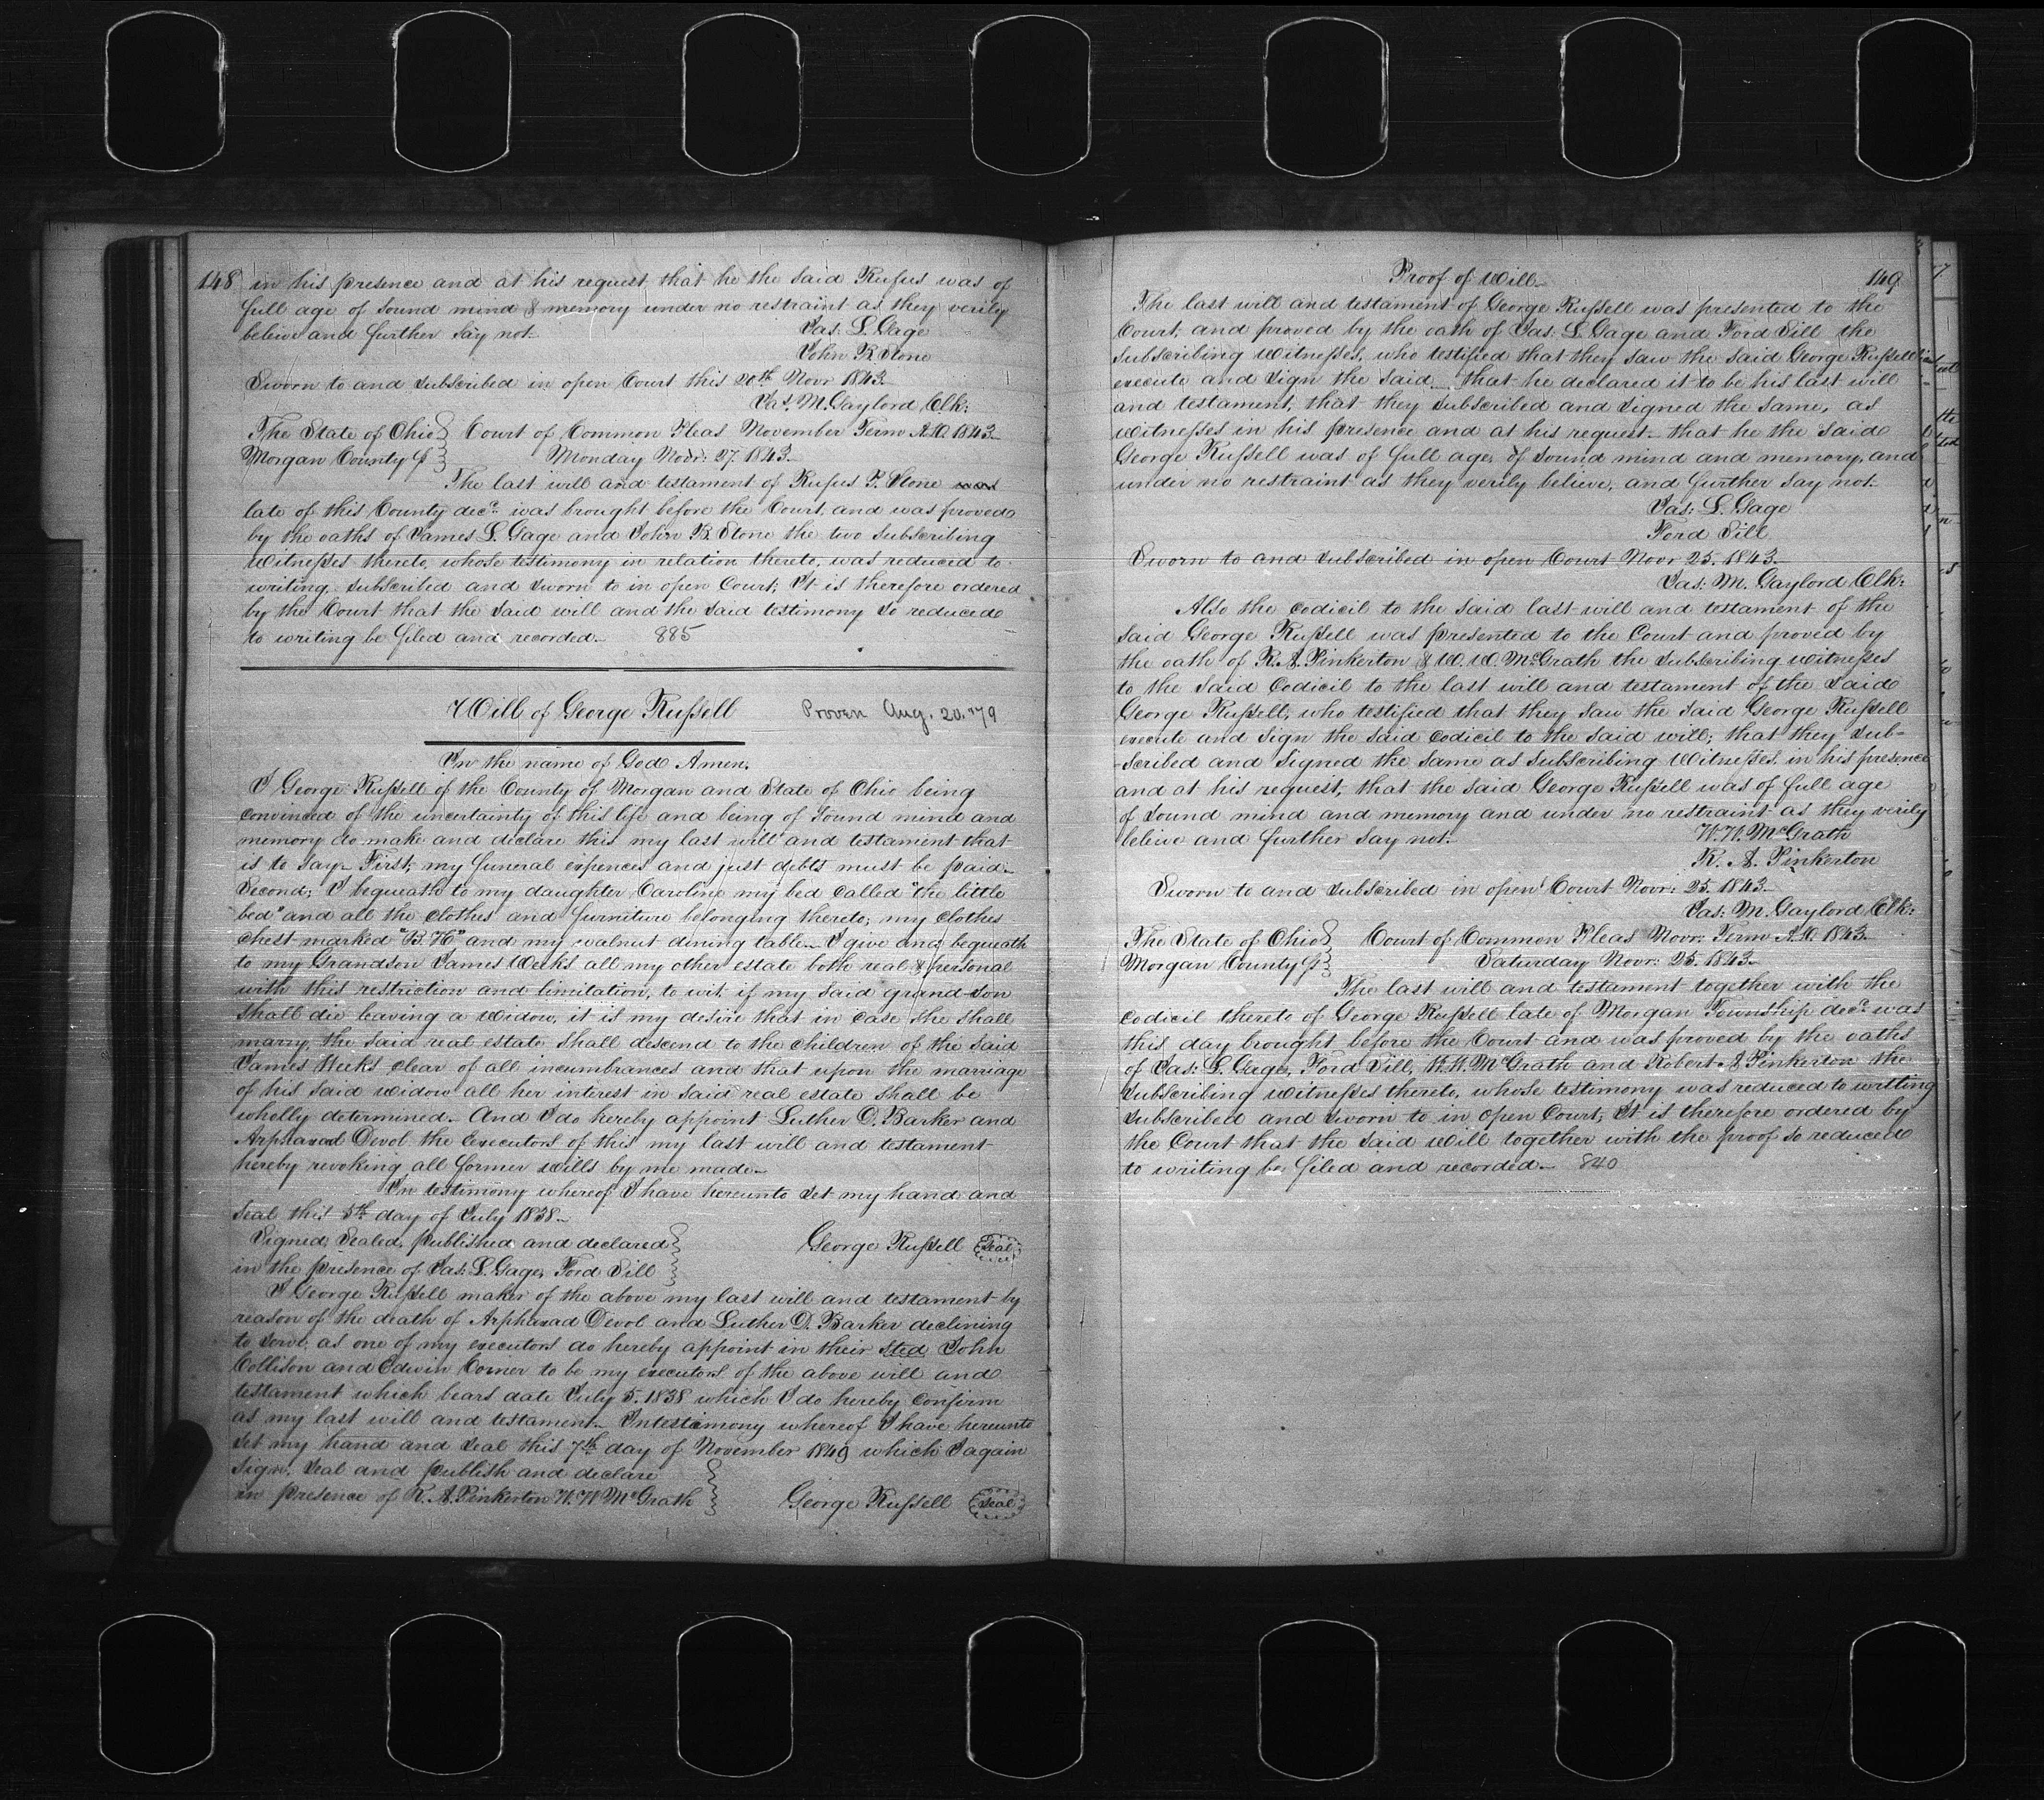 148 in his presence and at his request, that he the said Rufus was of
full age of sound mind & memory under no restraint as they verily
believe and further say not.
Jas. L. Gage
John B. Stone
Sworn to and subscribed in open Court this 20th Novr 1843
Jas. M. Gaylord Clk:
The State of Ohio } Court of Common Pleas November Term A.D. 1843
Morgan County ss } Monday Novr: 27. 1843
The last will and testament of Rufus P. Stone was
late of this County decd. was brought before the Court, and was proved
by the oaths of James L. Gage and John B. Stone the two subscribing
Witnesses thereto, whose testimony in relation thereto, was reduced to
writing, subscribed and sworn to in open Court, It is therefore ordered
by the Court that the said will and the said testimony so reduced
to writing be filed and recorded. 885
Will of George Russell Proven Aug. 20. '79
In the name of God Amen.
I George Russell of the County of Morgan and State of Ohio being
convinced of the uncertainty of this life and being of sound mind and
memory do make and declare this my last will and testament that
is to say. First, my funeral expences and just debts must be paid.
Second; I bequeath to my daughter, Caroline my bed called "the little
bed" and all the clothes and furniture belonging thereto; my clothes
chest marked "B. H" and my walnut dining table. I give and bequeath
to my Grandson James Weeks all my other estate both real & personal
with this restriction and limitation, to wit. if my said grand son
shall die leaving a widow, it is my desire that in case she shall
marry, the said real estate shall descend to the children of the said
James Weeks clear of all incumbrances and that upon the marriage
of his said widow all her interest in said real estate shall be
wholly determined. And I do hereby appoint Luther D. Barker and
Arphaxad Devol the executors of this my last will and testament
hereby revoking all former wills by me made.
In testimony whereof I have hereunto set my hand and
seal this 5th day of July 1838.
Signed, Sealed, published and declared }
in the presence of Jas: L. Gage, Ford Sill } George Russell Seal
I George Russell maker of the above my last will and testament by
reason of the death of Arphaxad Devol and Luther D. Barker declining
to serve as one of my executors do hereby appoint in their sted John
Collison and Edwin Corner to be my executors of the above will and
testament which bears date July 5. 1838 which I do hereby confirm
as my last will and testament. In testimony whereof I have hereunto
set my hand and seal this 7th day of November 1840 which I again
sign, seal and publish and declare }
in presence of R. A. Pinkerton W. W McGrath } George Russell Seal
Proof of Will. 149
The last will and testament of George Russell was presented to the
Court, and proved by the oath of Jas. L. Gage and Ford Sill the
subscribing witnesses, who testified that they saw the said George Russell
execute and sign the said that he declared it to be his last will
and testament, that they subscribed and signed the same, as
witnesses in his presence and at his request. that he the said
George Russell was of full age, of sound mind and memory, and
under no restraint as they verily believe, and further say not.
Jas: L. Gage
Ford Sill
Sworn to and subscribed in open Court Novr 25. 1843.
Jas: M. Gaylord Clk:
Also the codicil to the said last will and testament of the
said George Russell was presented to the Court and proved by
the oath of R. A. Pinkerton & W. W. McGrath the subscribing witnesses
to the said Codicil to the last will and testament of the said
George Russell, who testified that they saw the said George Russell
execute and sign the said codicil to the said will; that they sub-
-scribed and signed the same as subscribing Witnesses, in his presence
and at his request, that the said George Russell was of full age
of sound mind and memory and under no restraint as they verily
believe and further say not.
W. W. McGrath
R. A. Pinkerton
Sworn to and subscribed in open Court Novr: 25. 1843
Jas: M. Gaylord Clk:
The State of Ohio } Court of Common Pleas Novr: Term A.D. 1843
Morgan County ss } Saturday Novr: 25. 1843
The last will and testament together with the
codicil thereto of George Russell late of Morgan Township decd. was
this day brought before the Court and was proved by the oaths
of Jas: L. Gage, Ford Sill, W. W. McGrath and Robert A Pinkerton the
subscribing witnesses thereto, whose testimony was reduced to writing
subscribed and sworn to in open Court, It is therefore ordered by
the Court that the said Will together with the proof so reduced
to writing be filed and recorded. 840